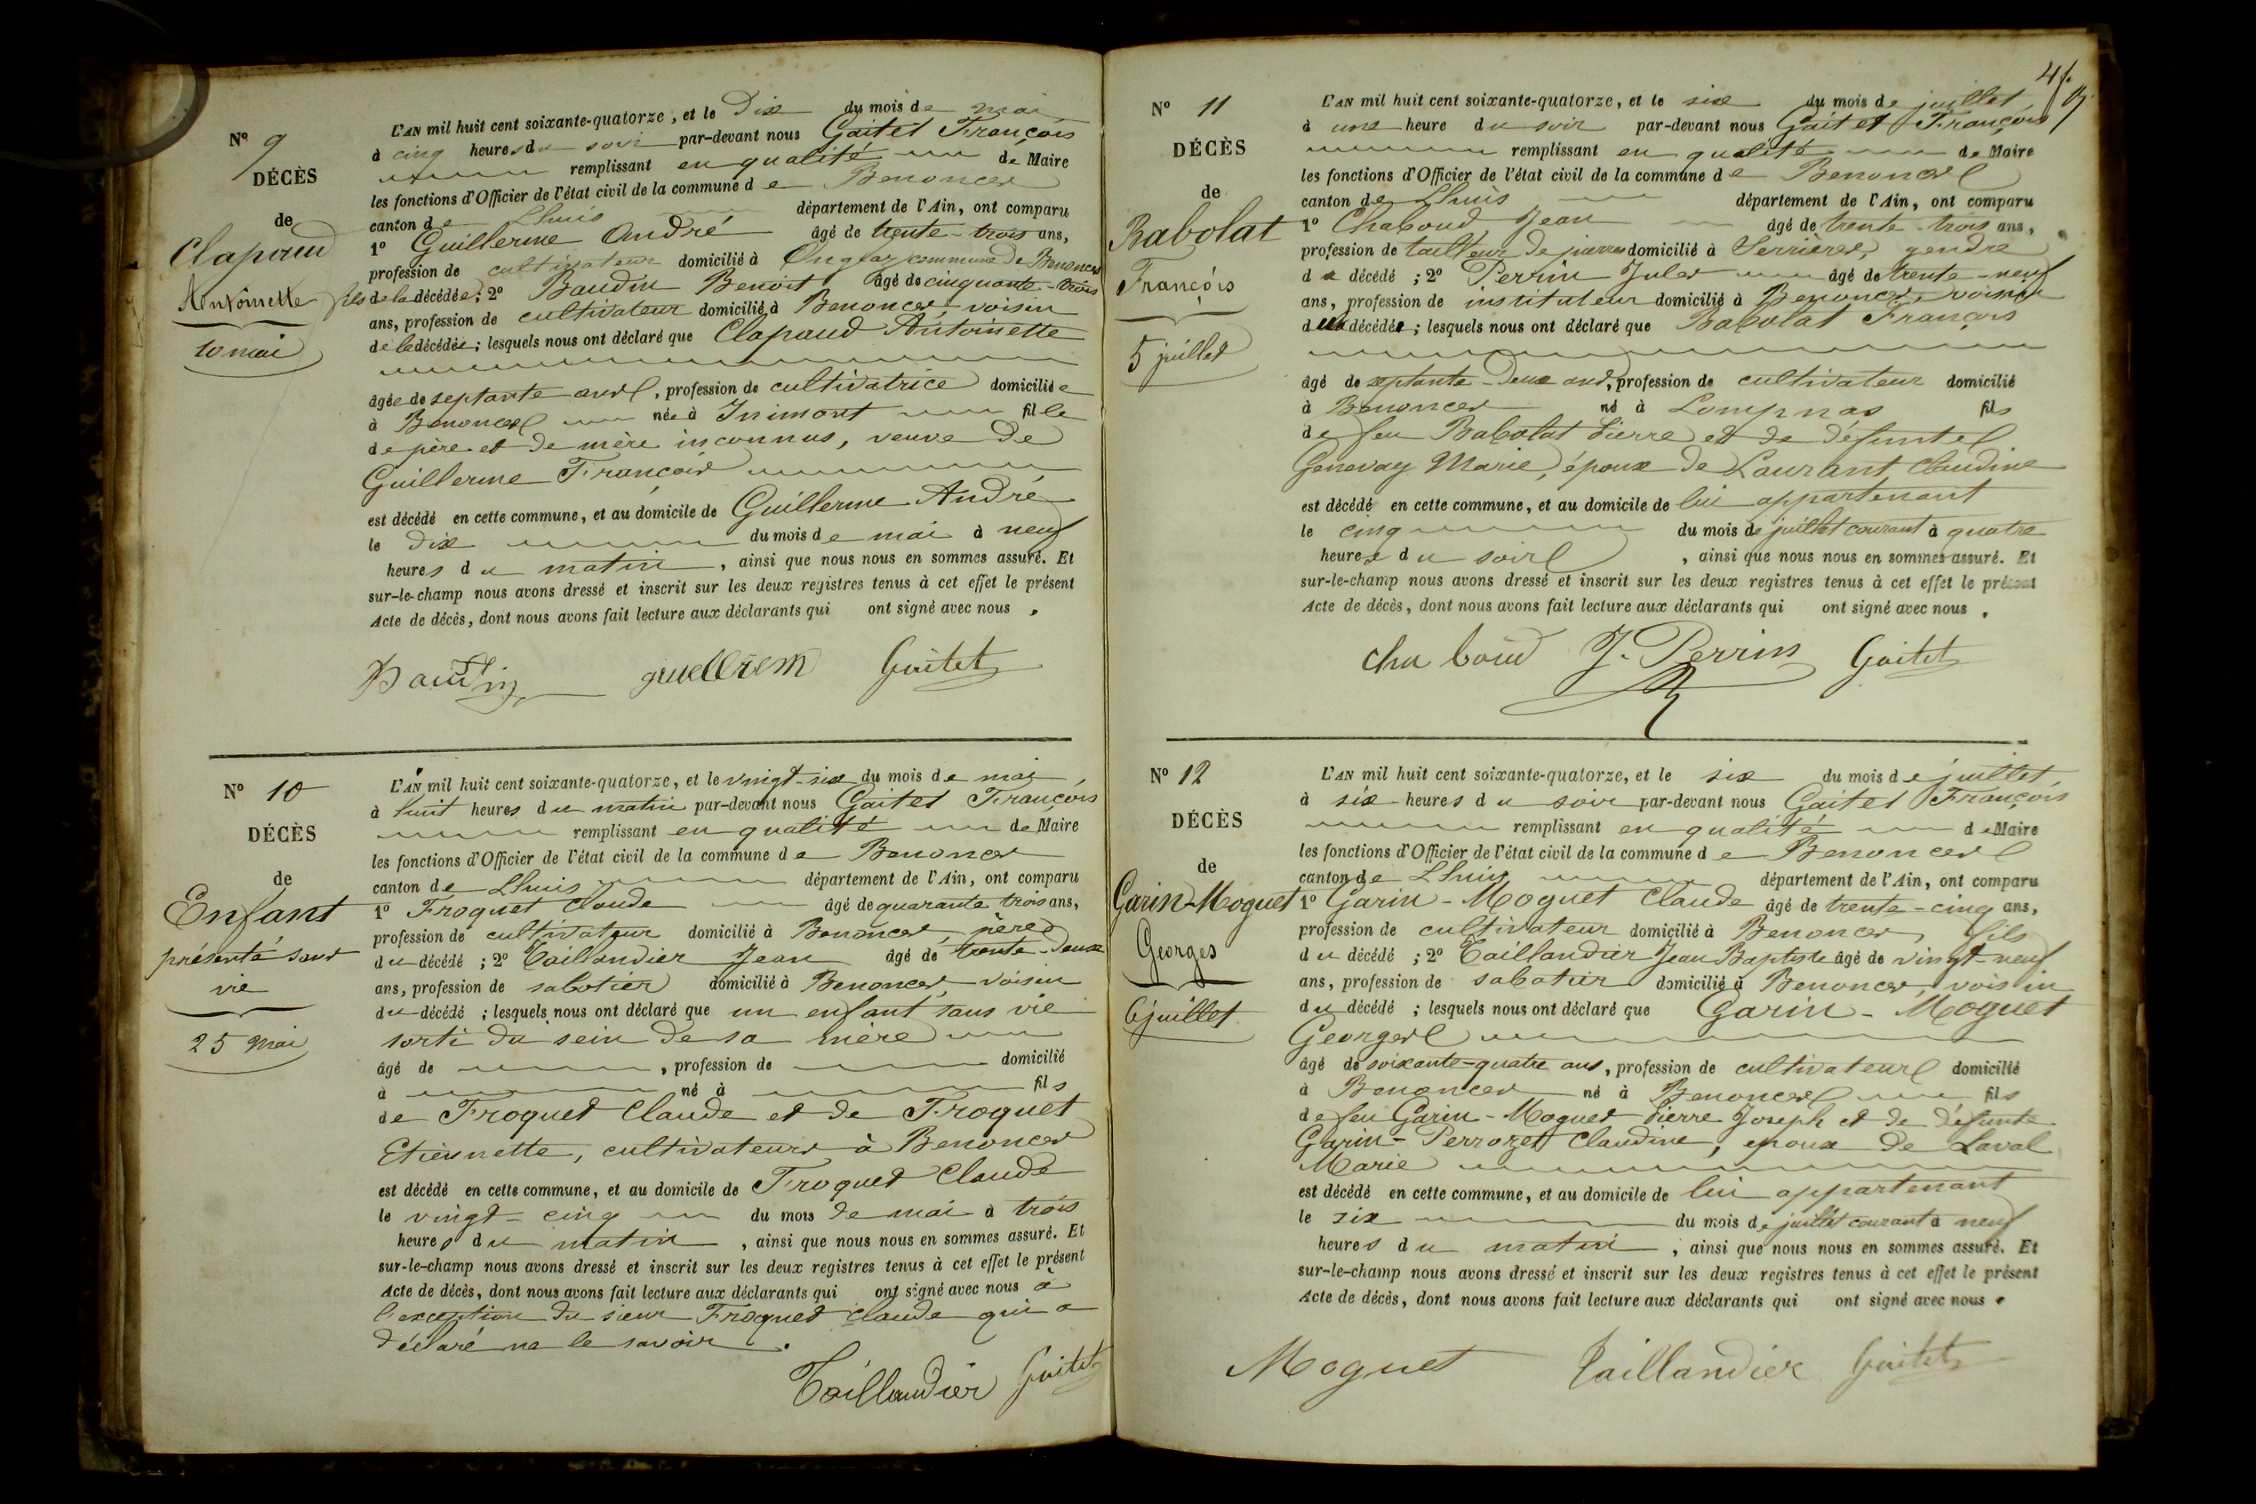 Nº 9
DÉCÈS
de
Clapaud
Antoinette
10 mai
L'AN mil huit cent soixante-quatorze, et le Dix du mois de mai
à cinq heures du soir par-devant nous Gaitet François
remplissant en qualité de Maire
les fonctions d'Officier de l'état civil de la commune de Benonces
canton de Lhuis département de l'Ain, ont comparu
1º Guillerme André âgé de trente-trois ans,
profession de cultivateur domicilié à commune de Benonces
fils de la décédée; 2º Baudin Benoit âgé de cinquante-trois
ans, profession de cultivateur domicilié à Benonces, voisin
de la décédée; lesquels nous ont déclaré que Clapaud Antoinette
âgée de septante ans, profession de cultivatrice domiciliée
à Benonces née à Inimont fille
de père et de mère inconnus, veuve De
Guillerme François
est décédé en cette commune, et au domicile de Guillerme André
le Dix du mois de mai à neuf
heures du matin, ainsi que nous nous en sommes assuré. Et
sur-le-champ nous avons dressé et inscrit sur les deux registres tenus à cet effet le présent
Acte de décès, dont nous avons fait lecture aux déclarants qui ont signé avec nous.
Baudin Gaitet
Nº 10
DÉCÈS
de
Enfant
présenté sans
vie
25 mai
L'AN mil huit cent soixante-quatorze, et le vingt-six du mois de mai,
à huit heures du matin par-devant nous Gaitet François
remplissant en qualité de Maire
les fonctions d'Officier de l'état civil de la commune de Benonces
canton de Lhuis département de l'Ain, ont comparu
1º Froquet Claude âgé de quarante trois ans,
profession de cultivateur domicilié à Benonces, père
du décédé; 2º Taillandier Jean âgé de trente-deux
ans, profession de sabotier domicilié à Benonces, voisin
du décédé; lesquels nous ont déclaré que un enfant sans vie
sorti du sein de sa mère
âgé de , profession de domicilié
à né à fils
de Froquet Claude et de Froquet
Etiennette, cultivateurs à Benonces
est décédé en cette commune, et au domicile de Froquet Claude
le vingt-cinq du mois de mai à trois
heures du matin, ainsi que nous nous en sommes assuré. Et
sur-le-champ nous avons dressé et inscrit sur les deux registres tenus à cet effet le présent
Acte de décès, dont nous avons fait lecture aux déclarants qui ont signé avec nous à
l'exception du sieur Froquet Claude qui a
déclaré ne le savoir.
Taillandier Gaitet
Nº 11
DÉCÈS
de
Babolat
François
5 juillet
L'AN mil huit cent soixante-quatorze, et le six du mois de juillet,
à une heure du soir par-devant nous Gaitet François
remplissant en qualité de Maire
les fonctions d'Officier de l'état civil de la commune de Benonces
canton de Lhuis département de l'Ain, ont comparu
1º Chaboud Jean âgé de trente-trois ans,
profession de tailleur de pierres domicilié à Serrières, gendre
décédé; 2º Perrin Jules âgé de trente-neuf
ans, profession de instituteur domicilié à Benonces, voisin
du décédé; lesquels nous ont déclaré que Babolat François
âgé de septante-Deux ans, profession de cultivateur domicilié
à Benonces né à Lompnas fils
de feu Babolat Pierre et de défunte
Genevay Marie, époux de Laurant Claudine
est décédé en cette commune, et au domicile de lui appartenant
le cinq du mois de juillet courant à quatre
heures du soir, ainsi que nous nous en sommes assuré. Et
sur-le-champ nous avons dressé et inscrit sur les deux registres tenus à cet effet le présent
Acte de décès, dont nous avons fait lecture aux déclarants qui ont signé avec nous.
Chaboud J. Perrin Gaitet
Nº 12
DÉCÈS
de
Garin-Moguet
Georges
6 juillet
L'AN mil huit cent soixante-quatorze, et le six du mois de juillet,
à six heures du soir par-devant nous Gaitet François
remplissant en qualité de Maire
les fonctions d'Officier de l'état civil de la commune de Benonces
canton de Lhuis département de l'Ain, ont comparu
1º Garin-Moguet Claude âgé de trente-cinq ans,
profession de cultivateur domicilié à Benonces, fils
du décédé; 2º Taillandier Jean Baptiste âgé de vingt-neuf
ans, profession de sabotier domicilié à Benonces, voisin
du décédé; lesquels nous ont déclaré que Garin-Moguet
Georges
âgé de soixante-quatre ans, profession de cultivateur domicilié
à Benonces né à Benonces fils
de feu Garin-Moguet Pierre Joseph et de défunte
Garin-Perrozet Claudine, époux de Laval
Marie
est décédé en cette commune, et au domicile de lui appartenant
le six du mois de juillet courant à neuf
heures du matin, ainsi que nous nous en sommes assuré. Et
sur-le-champ nous avons dressé et inscrit sur les deux registres tenus à cet effet le présent
Acte de décès, dont nous avons fait lecture aux déclarants qui ont signé avec nous.
Moguet Taillandier Gaitet